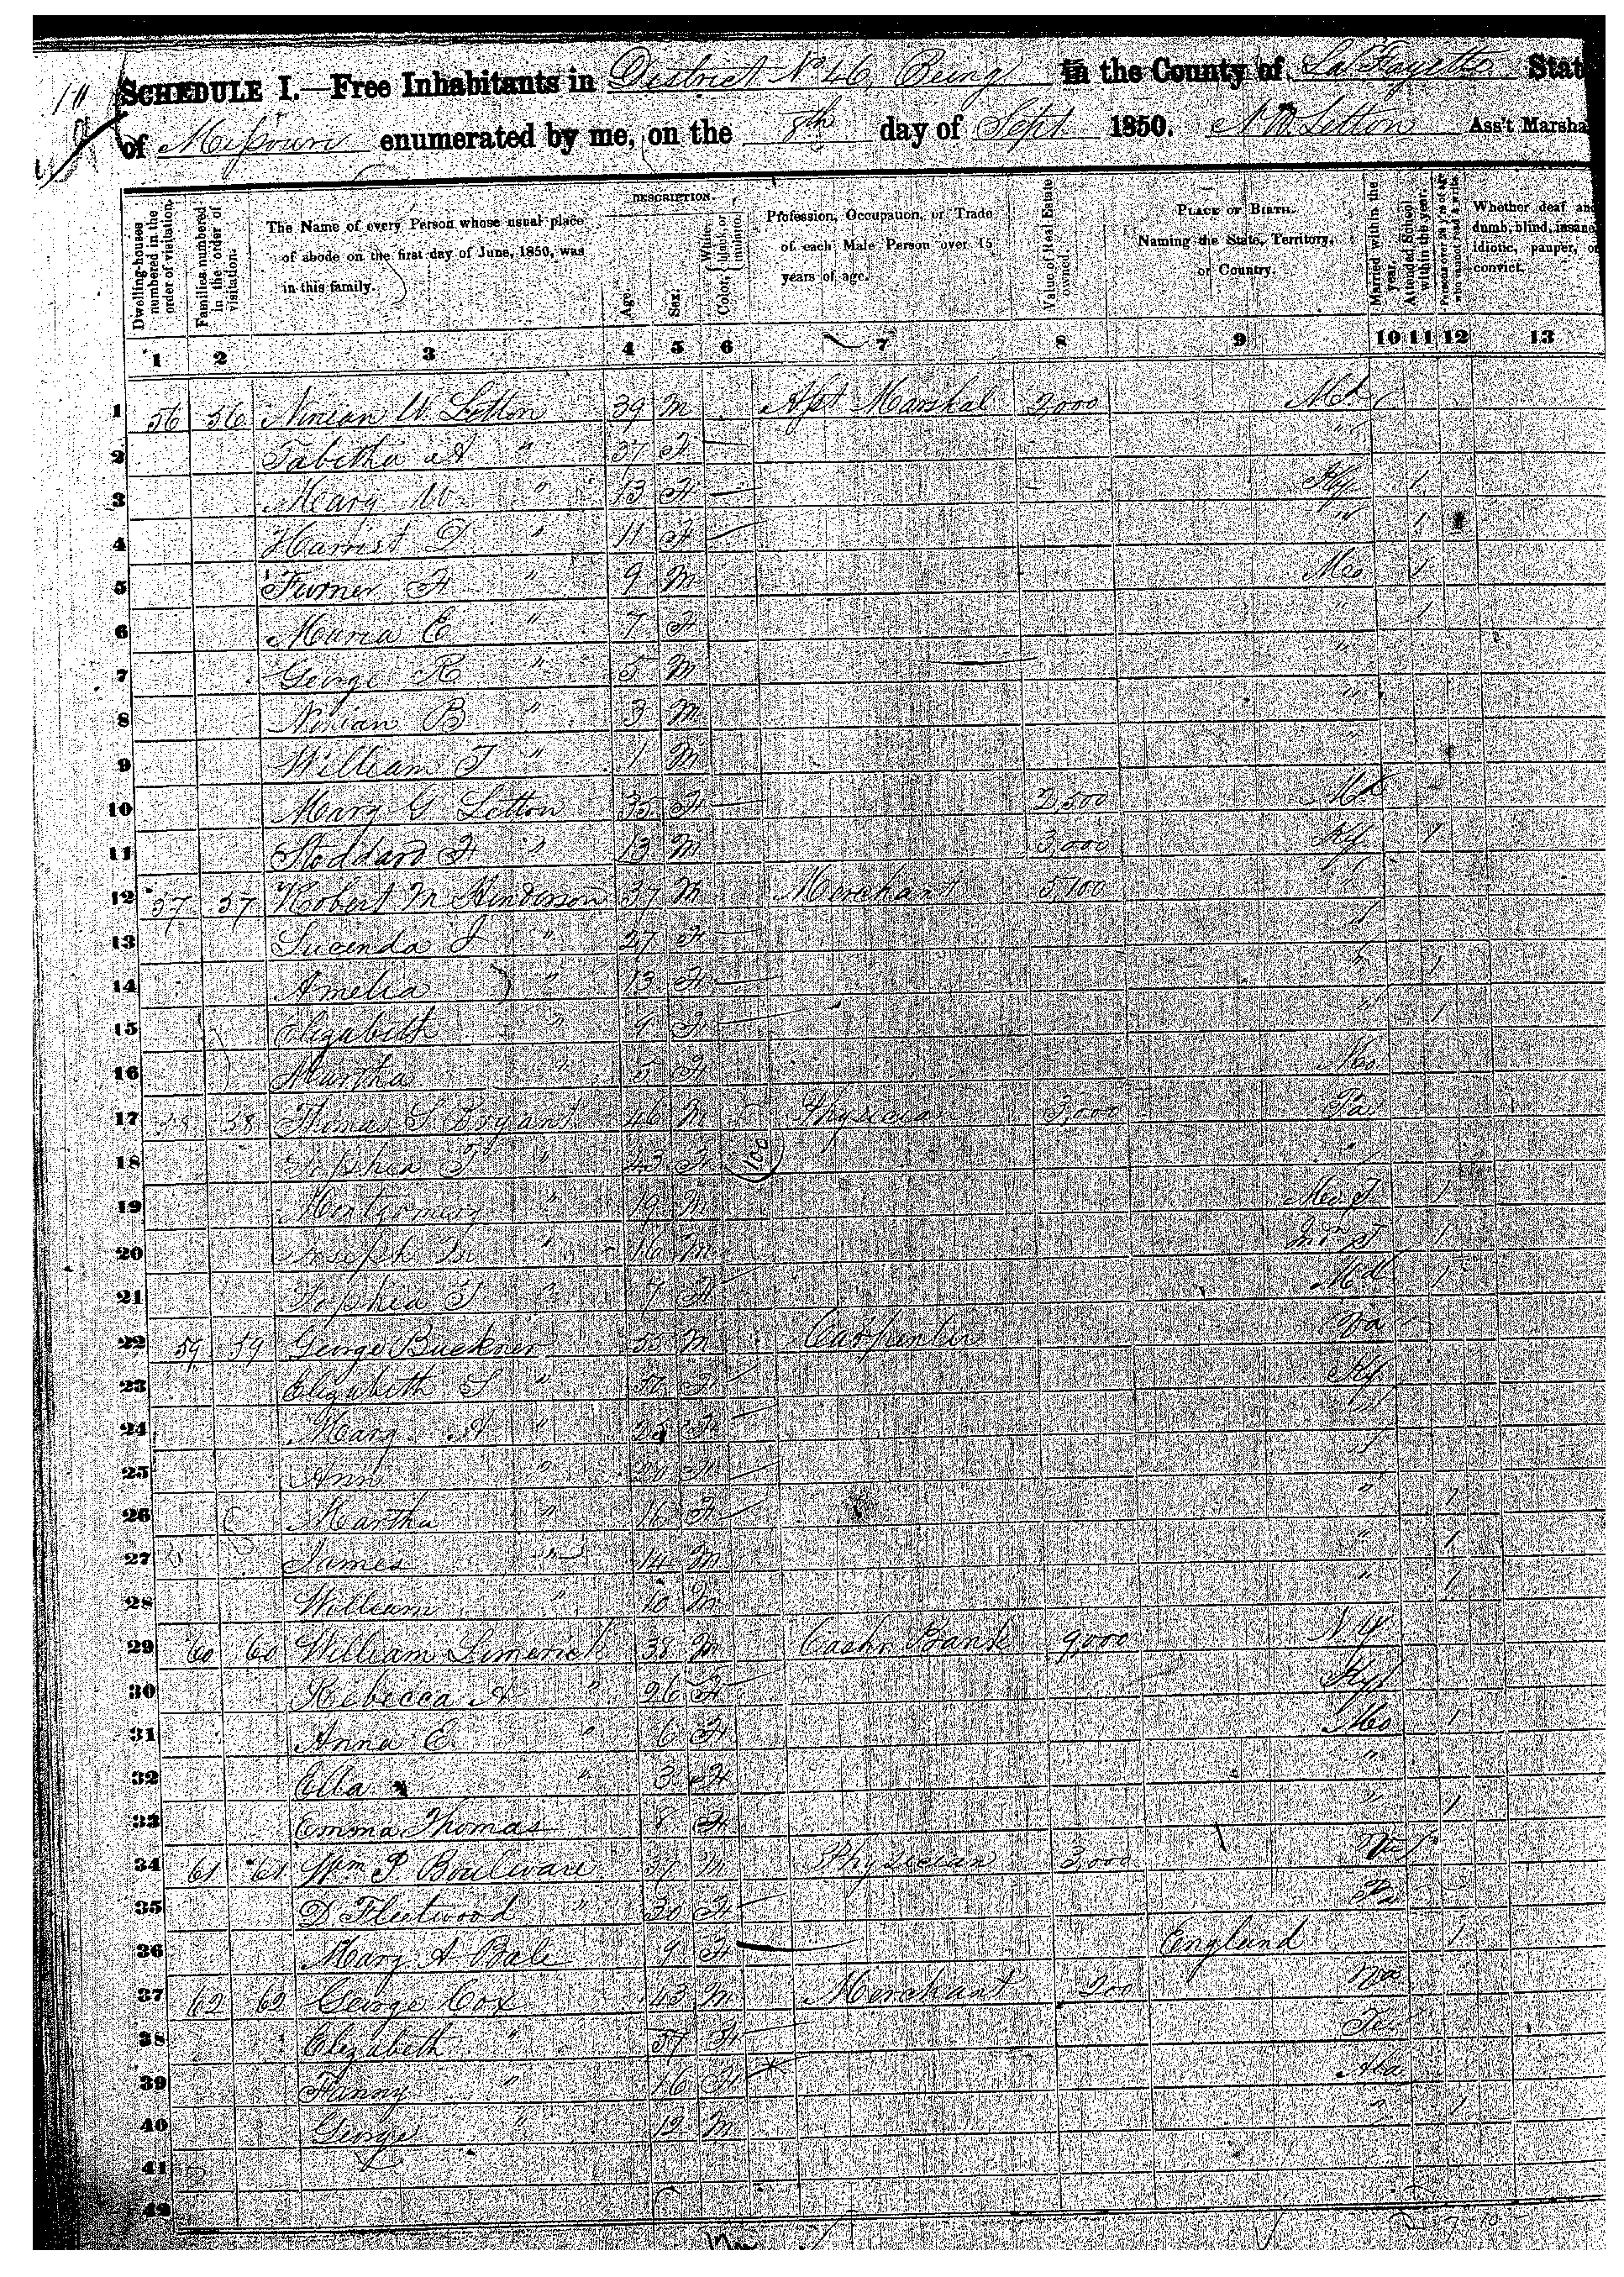 SCHEDULE I.—Free Inhabitants in District No 46, Being in the County of La Fayette State
of Missouri enumerated by me, on the 7th day of Sept 1850. N W Letton Ass't Marshal
DESCRIPTION.
Dwelling-houses numbered in the order of visitation.
Families numbered in the order of visitation.
The Name of every Person whose usual place of abode on the first day of June, 1850, was in this family.
Age.
Sex.
Color, White, black, or mulatto.
Profession, Occupation, or Trade of each Male Person over 15 years of age.
Value of Real Estate owned.
PLACE OF BIRTH. Naming the State, Territory, or Country.
Married within the year.
Attended School within the year.
Persons over 20 y'rs of age who cannot read & write.
Whether deaf and dumb, blind, insane, idiotic, pauper, or convict.
1 2 3 4 5 6 7 8 9 10 11 12 13
1 56 56 Ninian W Letton 39 M Asst Marshal 2000 Md
2 Tabitha A " 37 F "
3 Mary W " 13 F Ky 1
4 Harriet D " 11 F " 1
5 Turner H " 9 M Mo 1
6 Maria E " 7 F " 1
7 George R " 5 M "
8 Ninian B " 3 M "
9 William T " 1 M "
10 Mary G Letton 35 F 2500 Md
11 Stoddard F " 13 M 3,000 Ky 1
12 57 57 Robert M Henderson 37 M Merchant 5,100 "
13 Lucinda J " 27 F "
14 Amelia " 13 F " 1
15 Elizabeth " 9 F " 1
16 Martha " 5 F Mo
17 58 58 Thomas S Bryant 46 M Physician 3,000 Pa
18 Sophia T " 43 F "
19 Montgomery " 19 M 1
20 Joseph " 16 M 1
21 Sophia T " 7 F Md 1
22 59 59 George Buckner 55 M Carpenter Va
23 Elizabeth S " F Ky
24 Mary A " F "
25 Ann " 20 F "
26 Martha " 16 F " 1
27 James " 14 M " 1
28 William " 10 M " 1
29 60 60 William Limerick 38 M Cashr Bank 9,000 N Y
30 Rebecca A " 26 F Ky
31 Anna E " 6 F Mo 1
32 Ella " 3 F "
33 Emma Thomas 8 F " 1
34 61 61 Wm P Boulware 37 M Physician 3,000
35 D Fleetwood " 30 F Pa
36 Mary A Bale 9 F England 1
37 62 62 George Cox 43 M Merchant 200 Va
38 Elizabeth " 37 F Te
39 Fanny " 16 F Ala
40 George " 12 M " 1
41
42